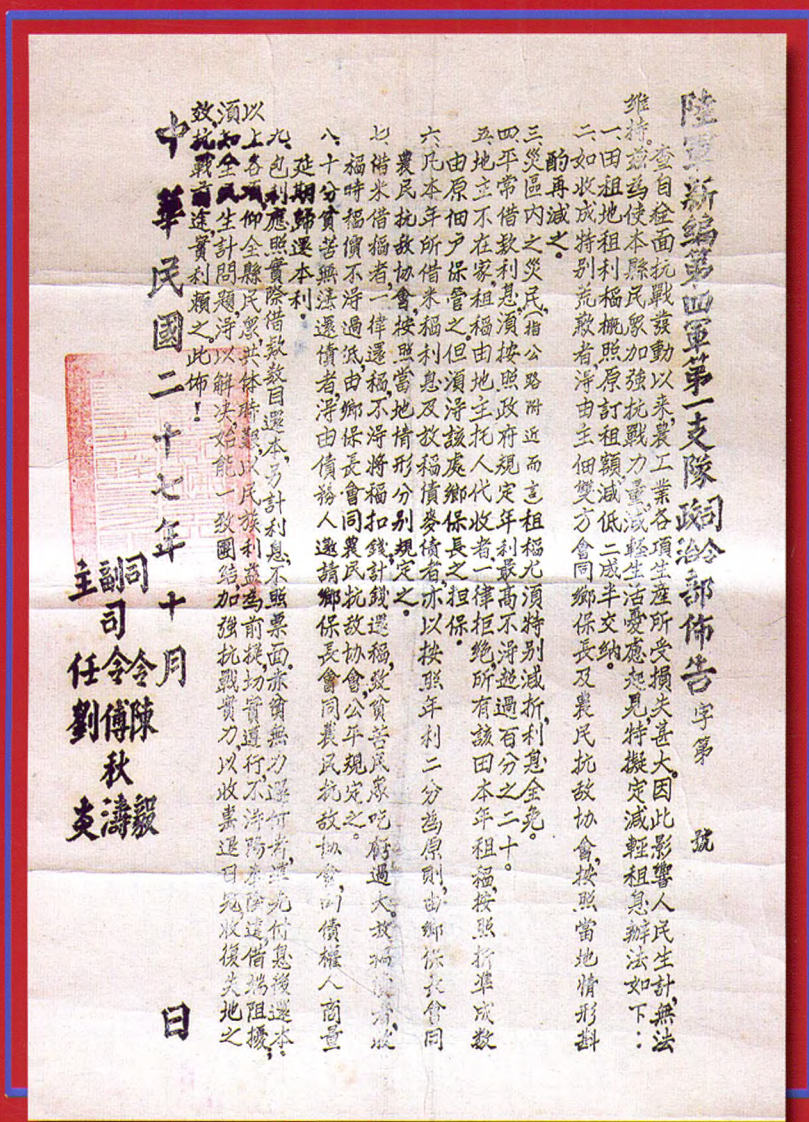 陸軍新編第四軍第一支隊司令政治部佈告 字第 號
查自全面抗戰發動以來,農工業各項生產所受損失甚大。因此影響人民生計,無法
維持。茲為使本縣民眾加強抗戰力量,減輕生活憂慮起見,特擬定減輕租息辦法如下:
一、田租地租利稲概照原訂租額減低二成半交納。
二、如收成特別荒歉者,得由主佃雙方會同鄉保長及農民抗敵協會,按照當地情形斟
酌再減之。
三、災區內之災民,(指公路附近而言租稲尤須特別減折,利息全免。
四、平常借款利息,須按照政府規定年利最高不得超過百分之二十。
五、地主不在家,租稲由地主托人代收者一律拒绝,所有該田本年租稲,按照折準成數
由原佃户保管之,但須得該處鄉保長之担保。
六、凡本年所借米稲利息及放稲債麥債者,亦以按照年利二分為原則,由鄉保長會同
農民抗敵協會,按照當地情形分別規定之。
七、借米借稲者,一律還稲,不得將稲扣錢計錢還稲,致貧苦民眾吃虧過大。放稲債者,收
稲時稲價不得過低,由鄉保長會同農民抗敵協會,公平規定之。
八、十分貧苦無法還債者,得由債務人邀請鄉保長會同農民抗敵協會,向債權人商量
延期歸還本利。
九、包利應照實際借款数目還本,另計利息,不照票面。亦貧無力還付者,准先付息後還本。
以上各項仰全縣民眾,共体時艱,以民族利益為前提,切實遵行,不得陽奉陰違,借端阻擾,
須知全民生計問題,得以解决,始能一致團結,加強抗戰實力,以收嵩退日寇,收復失地之
效,抗戰前途,實利賴之。此佈!
中華民國二十七年十月 日
司令陳毅
副司令傅秋濤
主任劉炎